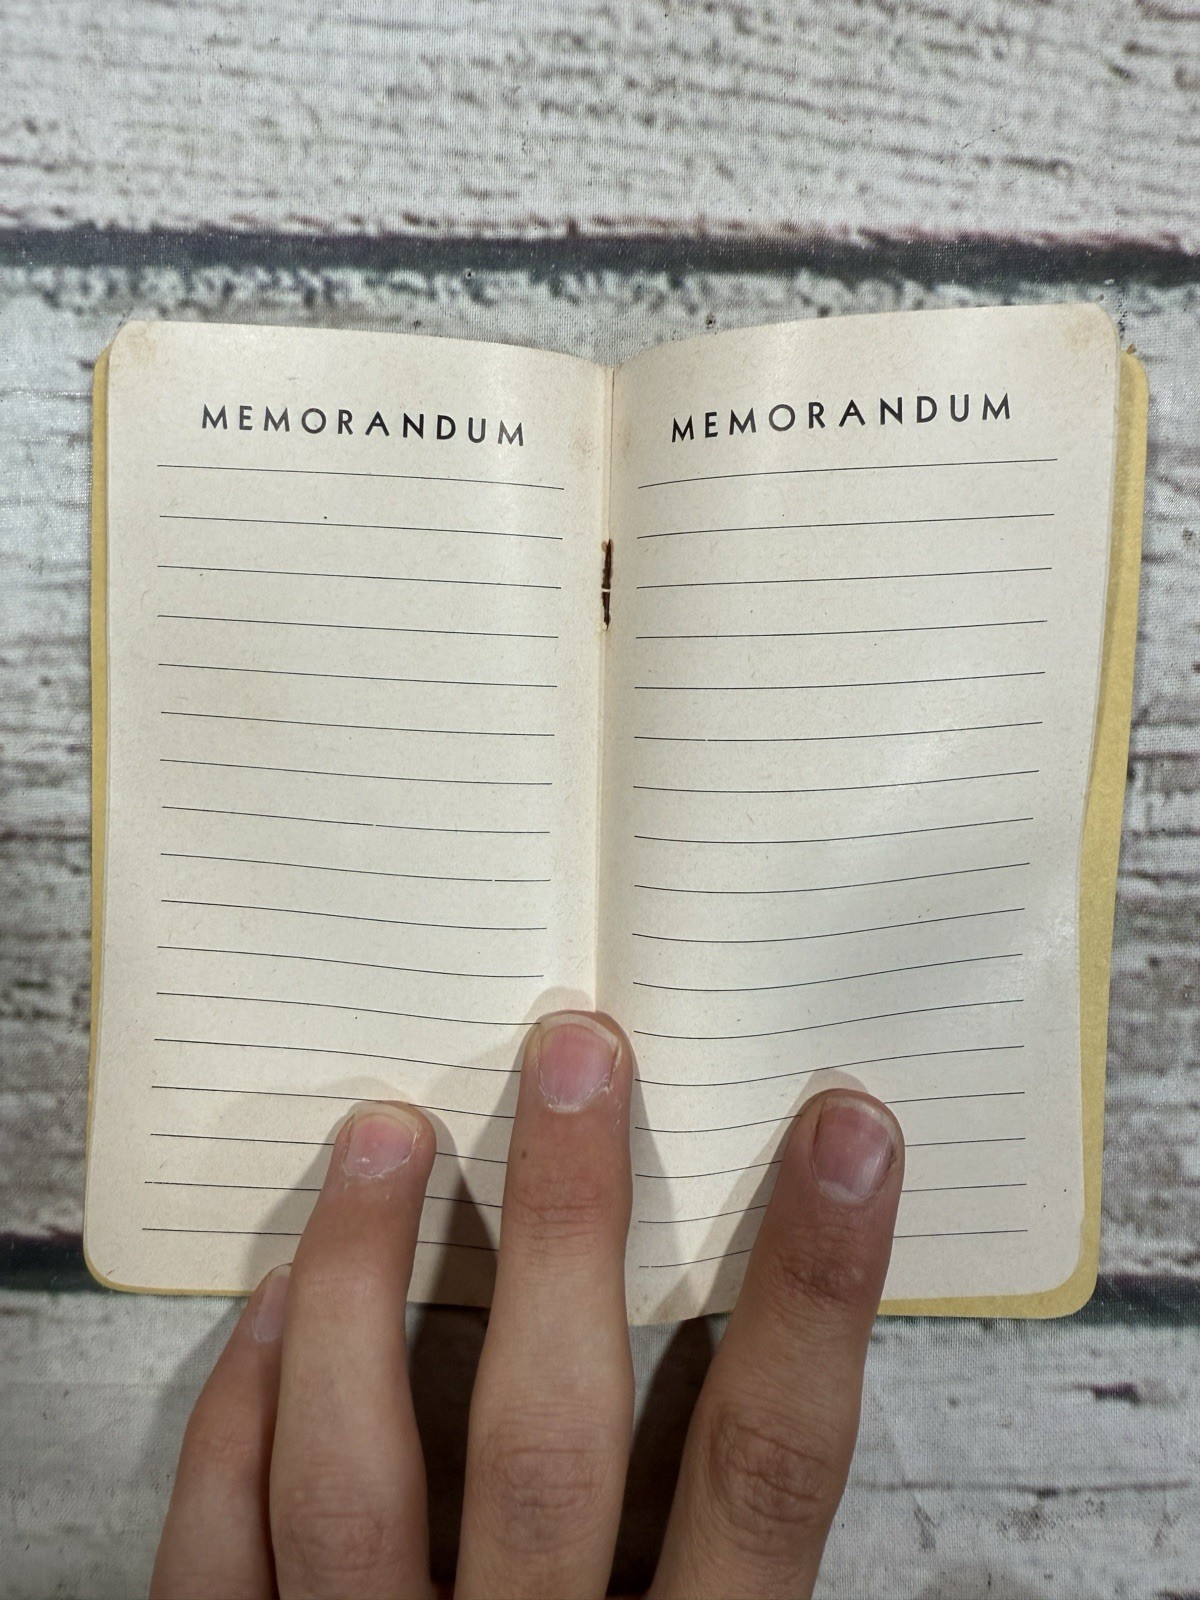 MEMORANDUM
MEMORANDUM